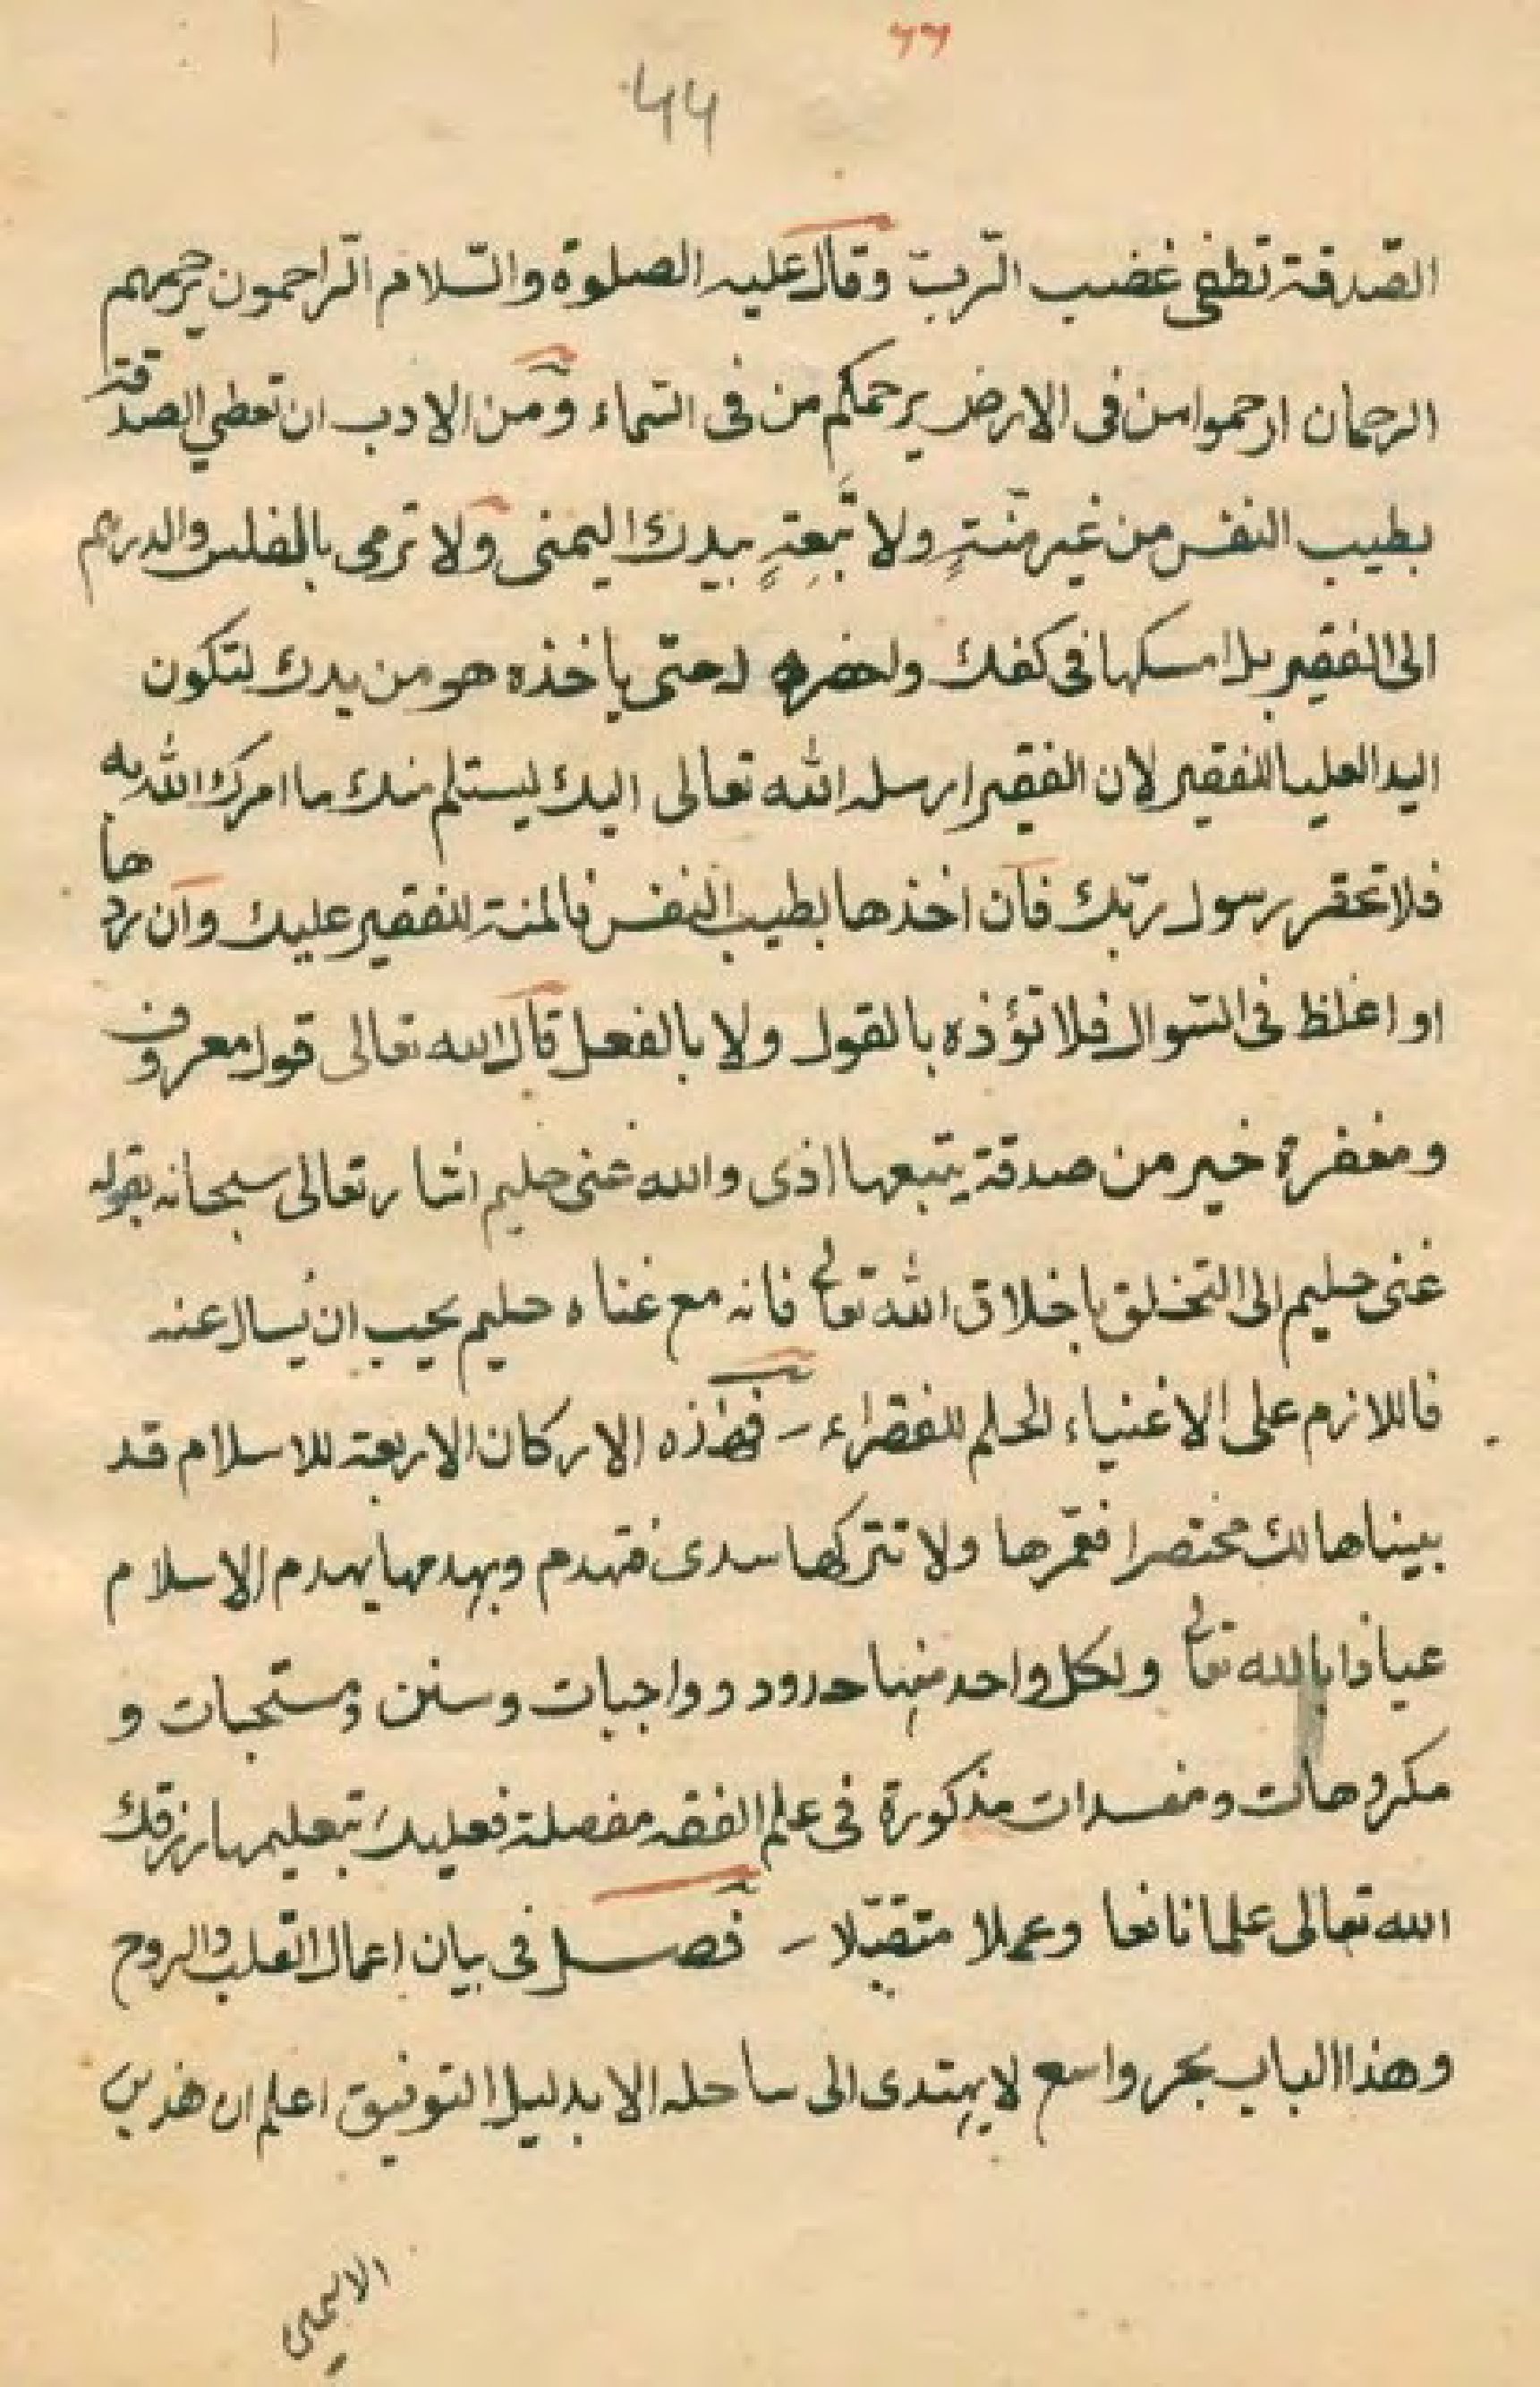 ٦٦
٦٦
الصّدقة تطفئ غضب الرّبّ وقال عليه الصلوة والسّلام الرّاحمون يرحمهم
الرحمان ارحموا من فى الارض يرحمكم من فى السّماء ومن الادب ان تعطي الصدقة
بطيب النفس من غير منّةٍ ولا تَبِعةٍ بيدك اليمنى ولا ترمى بالفلس والدرهم
الى الفقير بل امسكها فى كفك حتى ياخذه هو من يدك لتكون
اليد العليا للفقير لان الفقير ارسله الله تعالى اليك ليستلم منك ما امرك الله به
فلا تحقر رسول ربّك فان اخذها بطيب النفس فالمنة للفقير عليك وان ردها
او اغلظ فى السّوال فلا تؤذه بالقول ولا بالفعل قال الله تعالى قول معروف
ومغفرة خير من صدقة يتبعها اذى والله غنى حليم اشار تعالى سبحانه بقوله
غنى حليم الى التخلق باخلاق الله تعالى فانه مع غناه حليم يحب ان يُسال عنه
فاللازم على الاغنياء الحلم للفقراء ـ فهذه الاركان الاربعة للاسلام قد
بيناها لك مختصرا فعمّرها ولا تتركها سدى فتهدم وبهدمها يهدم الاسلام
عياذا بالله تعالى ولكل واحد منها حدود وواجبات وسنن ومستحبات و
مكروهات ومفسدات مذكورة فى علم الفقه مفصلة فعليك بتعليمها رزقك
الله تعالى علما نافعا وعملا متقبّلا ـ فصل فى بيان اعمال القلب والروح
وهذا الباب بحر واسع لا يهتدى الى ساحله الا بدليل التوفيق اعلم ان هذين